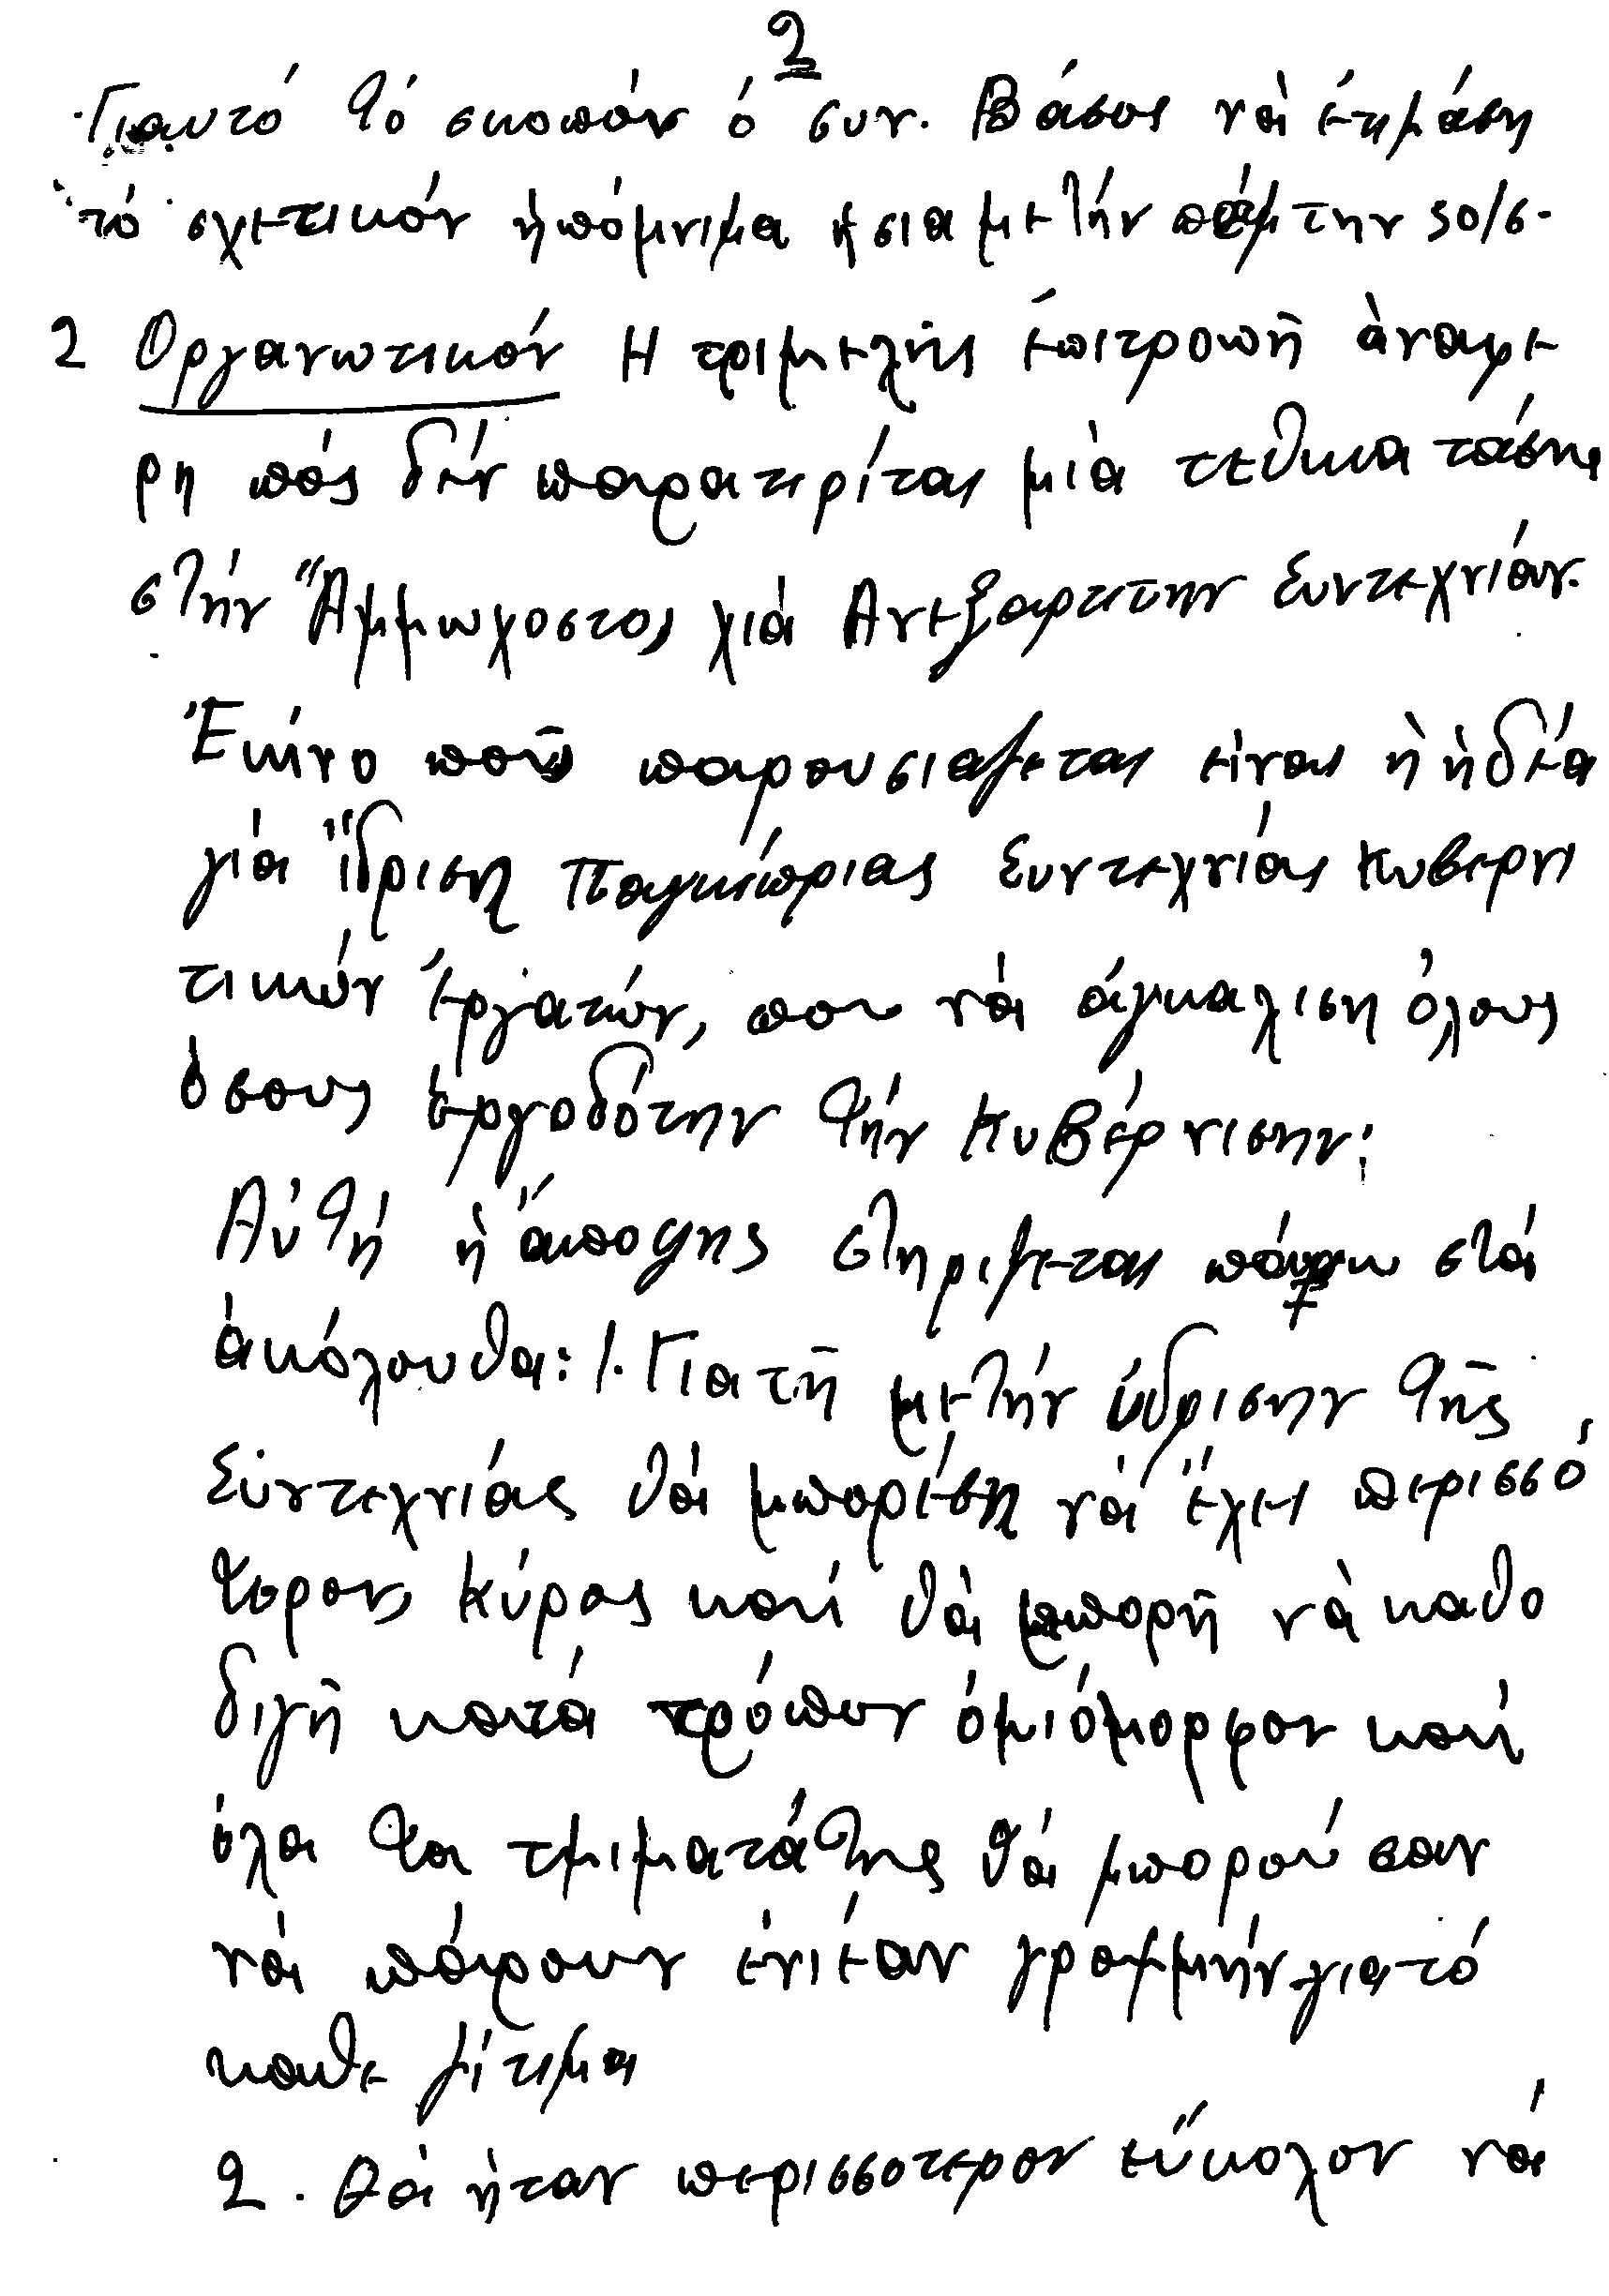 2
Γιαυτό τό σκοπόν ὁ συν. Βάσος νά ἑτιμάση
τό σχετικόν ἡπόμνιμα ἡσια με τήν πέμτην 30/6.
2 Οργανωτικόν Η τριμελής ἐπιτροπή ἀναφε
ρη πός δέν παρατιρίται μιά τεθκια τάσης
στήν Ἀμμωχοστος γιά Ανεξαρτιτην Συντεχνίαν.
Ἐκίνο ποῦ παρουσιαζεται εἰναι ἡ ἡδέα
γιά ἵδριση Παγκύπριας Συντεχνίας Κυβερνι
τικών ἐργατών, που νά ἀγκαλιση ὅλους
ὁσους ἐργοδότην τήν Κυβέρνισην:
Αὐτή ἡ ἄποψης στηριζεται πάνω στά
ἀκόλουθα: 1. Γιατῆ με τήν ὑδρισην τῆς
Συντεχνίας θά μπορέση νά ἔχει περισσό
τερον κύρος καί θά μπορῆ νὰ καθο
διγῆ κατά τρόπον ὁμιόμορφον καί
ὁλα τα τμιματά της θά μπορούσαν
νά πάρουν ἐνιέαν γραμμήν για τό
καθε ζίτιμα
2. Θά ἡταν περισσοτερον εὔκολον νά